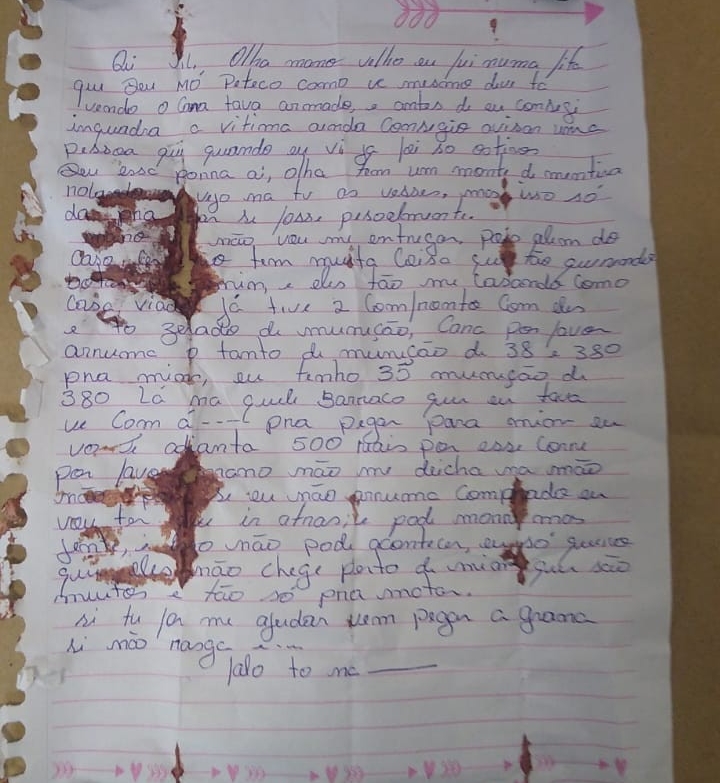 Oi Jil, Olha mano velho eu fui numa fita
que Deu MÓ Peteco como ve mesmo deve ta
vendo o Cana tava armado, e antes de eu consegi
inquadra a vitima ainda Consegio avisar uma
Pessoa qui quando eu vi ja foi so os tiros
Deu essa porra ai, olha tem um monte de mentira
vejo na tv os vesses, mos isso só
da pra se fosse pesoalmente.
mano não vou me entregar, pois alem do
Caso tem muita Coisa que tão querendo
mim, e eles tão me Casando Como
Casa viado Já tive 2 Comfronto Com eles
e to zerado de munição, Cara por favor
arruma o tanto de munição de 38 e 380
pra mim, eu tenho 35 munição de
380 Lá na quele Barraco que eu tava
ve Com á ---- pra pegar para mim eu
adianta 500 mais por esse Corre
por favor mano não me deicha na mão
não se eu não arruma Comprado eu
vou ter ir atras, e pode morre mas
jente, e não pode acontecer, eu só quero
que eles não chege perto de mim que são
muitos e tão só pra matar.
si tu for me ajudar vem pegar a grana
si não rasga
falo to na ——